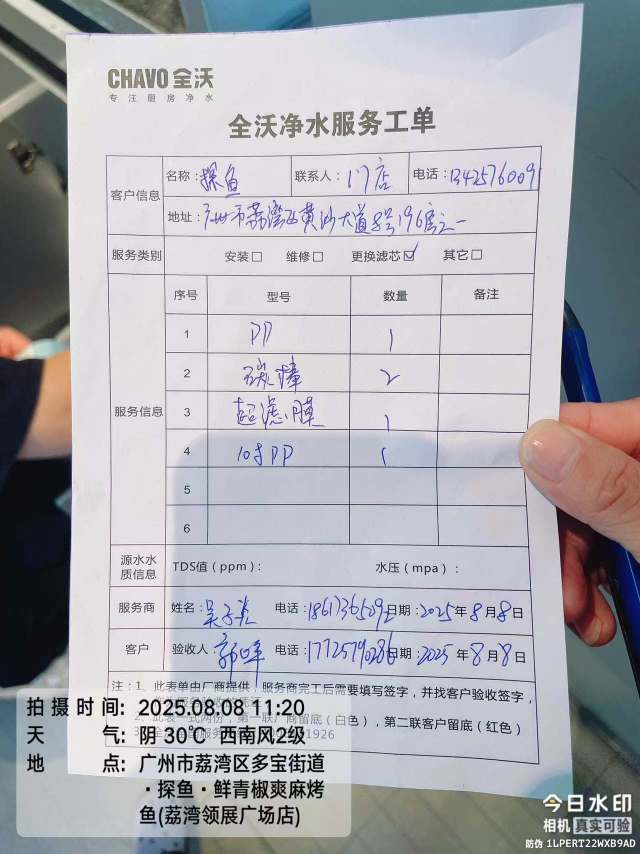 CHAVO 全沃
专注厨房净水
全沃净水服务工单
客户信息
名称: 探鱼 联系人: 门店 电话: 1342576009
地址: 广州市荔湾区黄沙大道8号196房之一
服务类别 安装□ 维修□ 更换滤芯☑ 其它□
服务信息
序号 型号 数量 备注
1 PP 1
2 碳棒 2
3 超滤膜 1
4 10寸PP 1
5
6
源水水质信息 TDS值（ppm）: 水压（mpa）:
服务商 姓名: 电话: 日期: 2025年8月8日
客户 验收人 电话: 17725790286 日期: 2025年8月8日
注：1、此表单由厂商提供！服务商完工后需要填写签字，并找客户验收签字，
2、此表一式两份，第一联厂商留底（白色），第二联客户留底（红色）
1926
拍摄时间: 2025.08.08 11:20
天气: 阴 30℃ 西南风2级
地点: 广州市荔湾区多宝街道
·探鱼·鲜青椒爽麻烤
鱼(荔湾领展广场店)
今日水印
相机 真实可验
防伪 1LPERT22WXB9AD